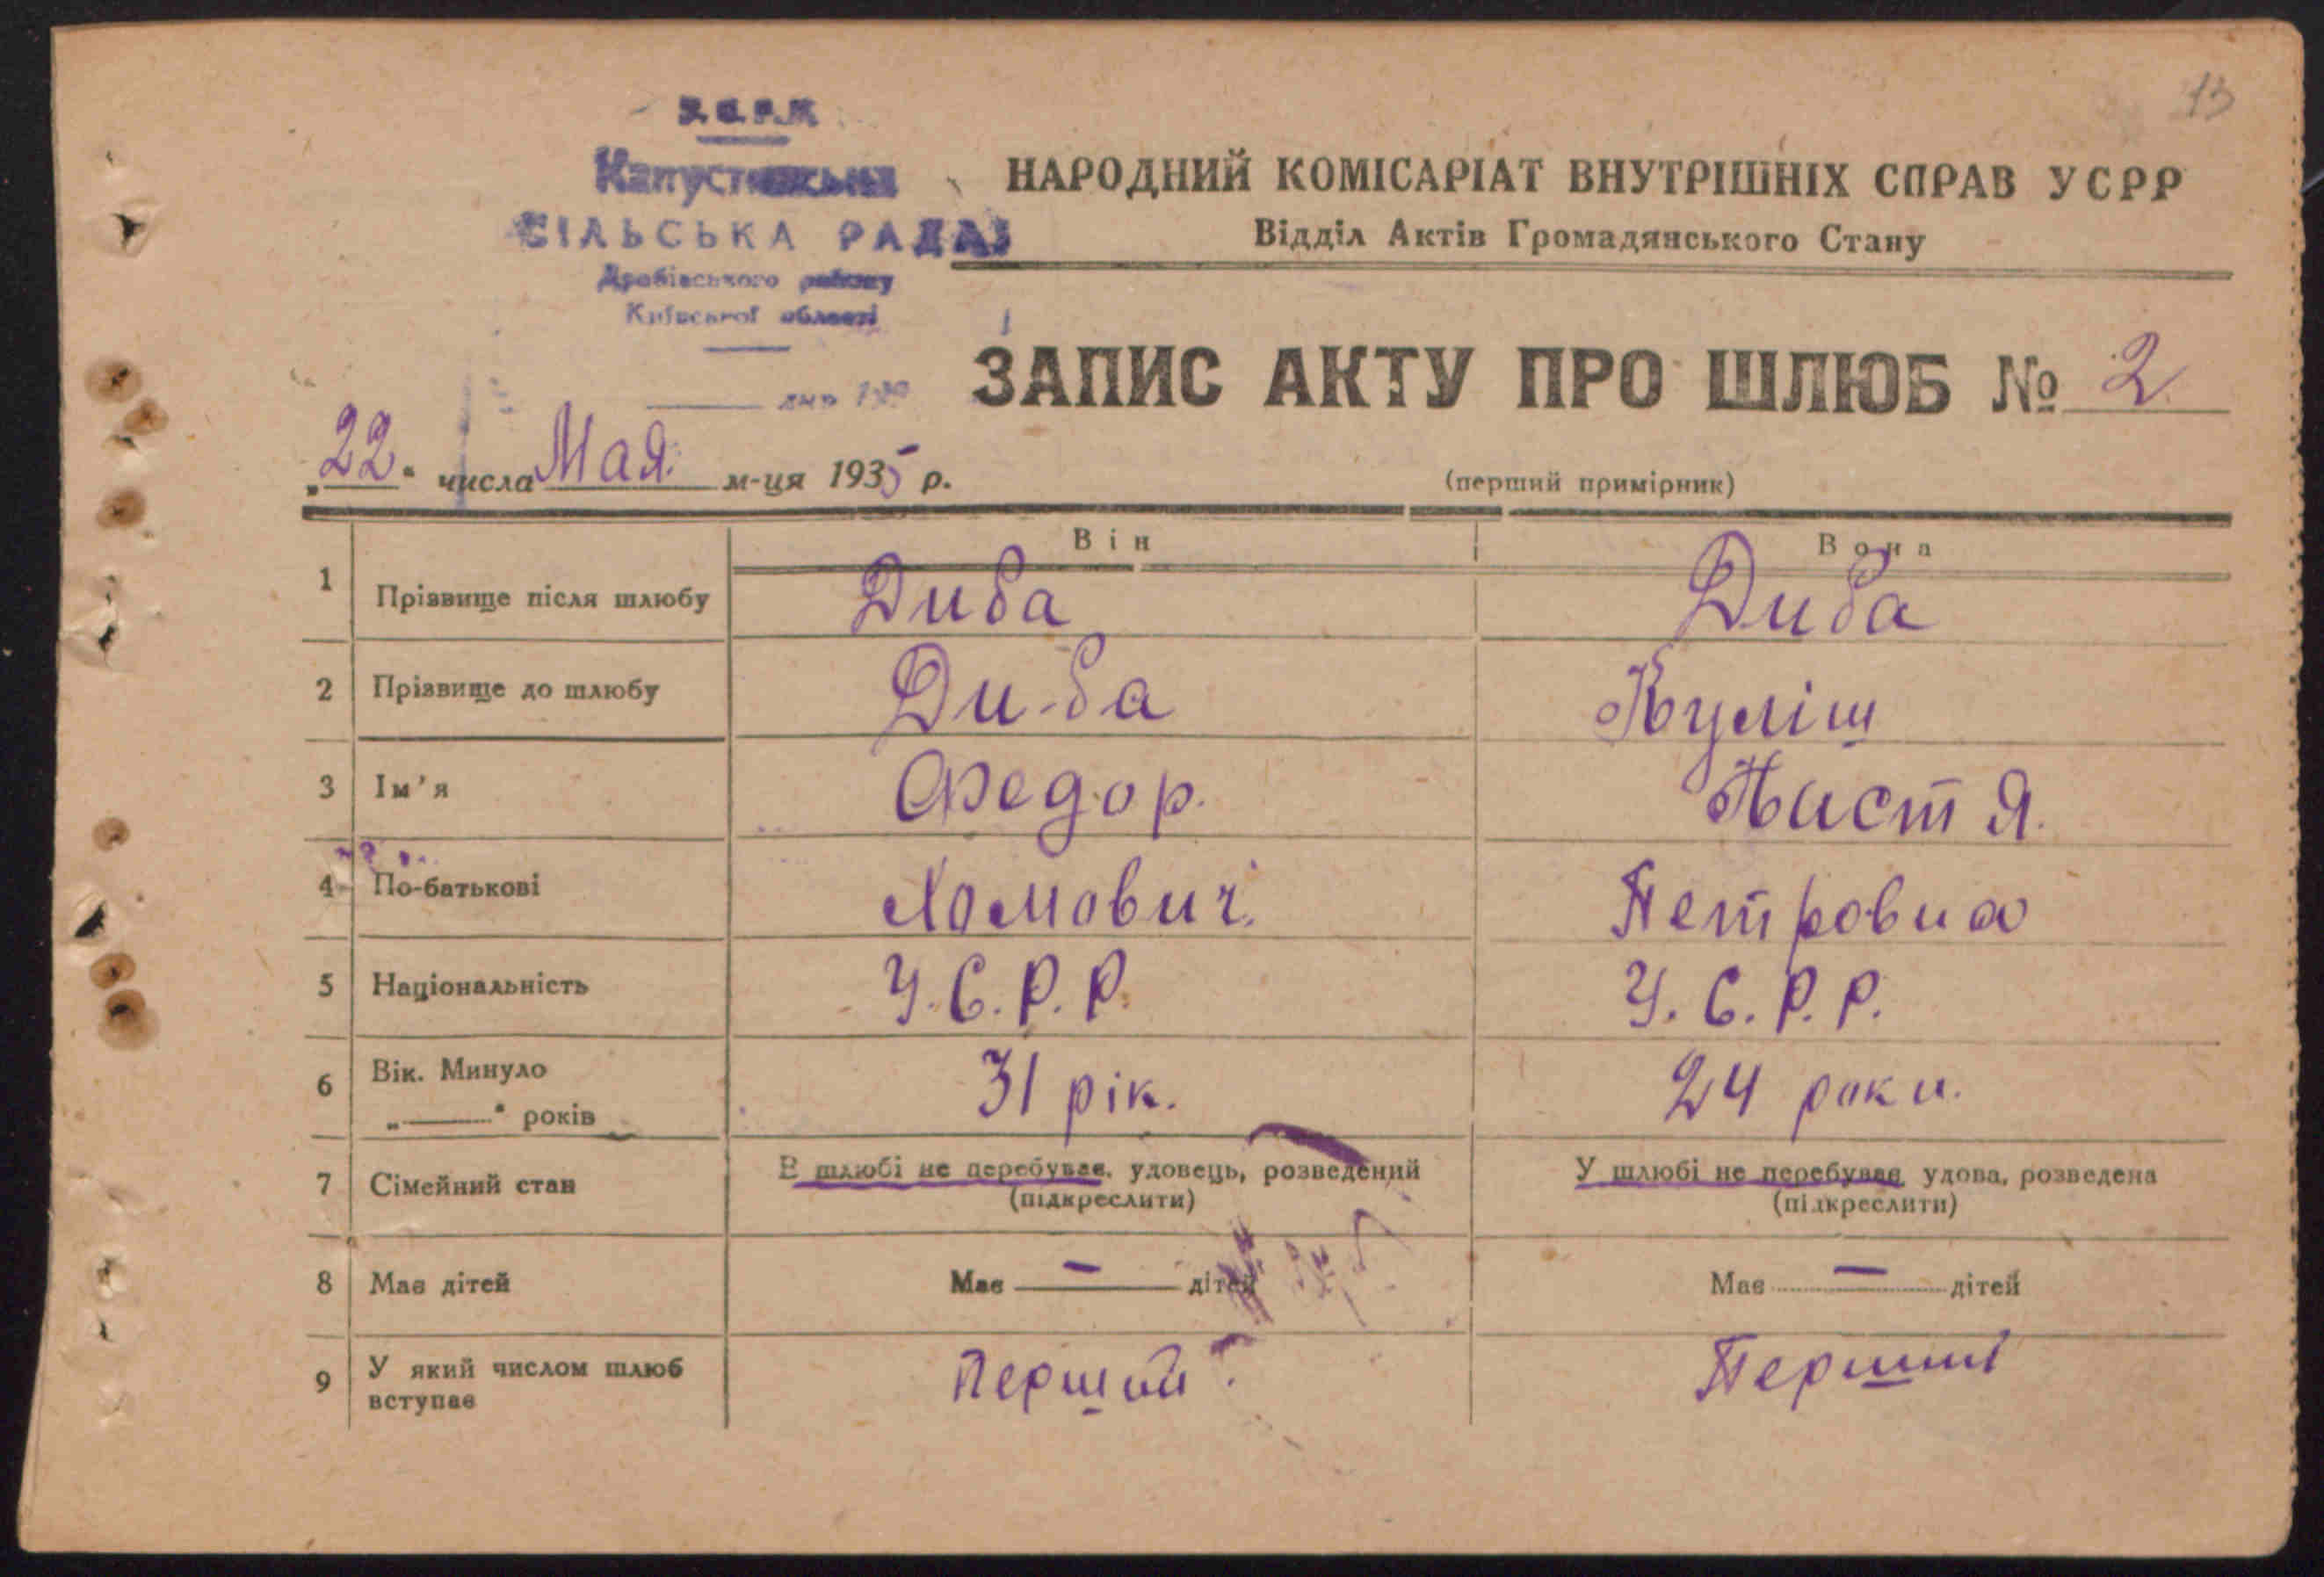 13
У.С.Р.Р.
Капустинська
СІЛЬСЬКА РАДА
Драбівського району
Київської області
дня 193
НАРОДНИЙ КОМІСАРІАТ ВНУТРІШНІХ СПРАВ УСРР
Відділ Актів Громадянського Стану
ЗАПИС АКТУ ПРО ШЛЮБ № 2
„22“ числа Мая м-ця 1935 р.
(перший примірник)
Він Вона
1 Прізвище після шлюбу Диба Диба
2 Прізвище до шлюбу Ди-ба Куліш
3 Ім'я Федор. Настя.
4 По-батькові Хомович. Петровна
5 Національність У.С.Р.Р. У.С.Р.Р.
6 Вік. Минуло 31 рік. 24 роки.
„——“ років
7 Сімейний стан В шлюбі не перебував, удовець, розведений У шлюбі не перебувая, удова, розведена
(підкреслити) (підкреслити)
8 Має дітей Має — дітей Має — дітей
9 У який числом шлюб Перший Перший
вступає